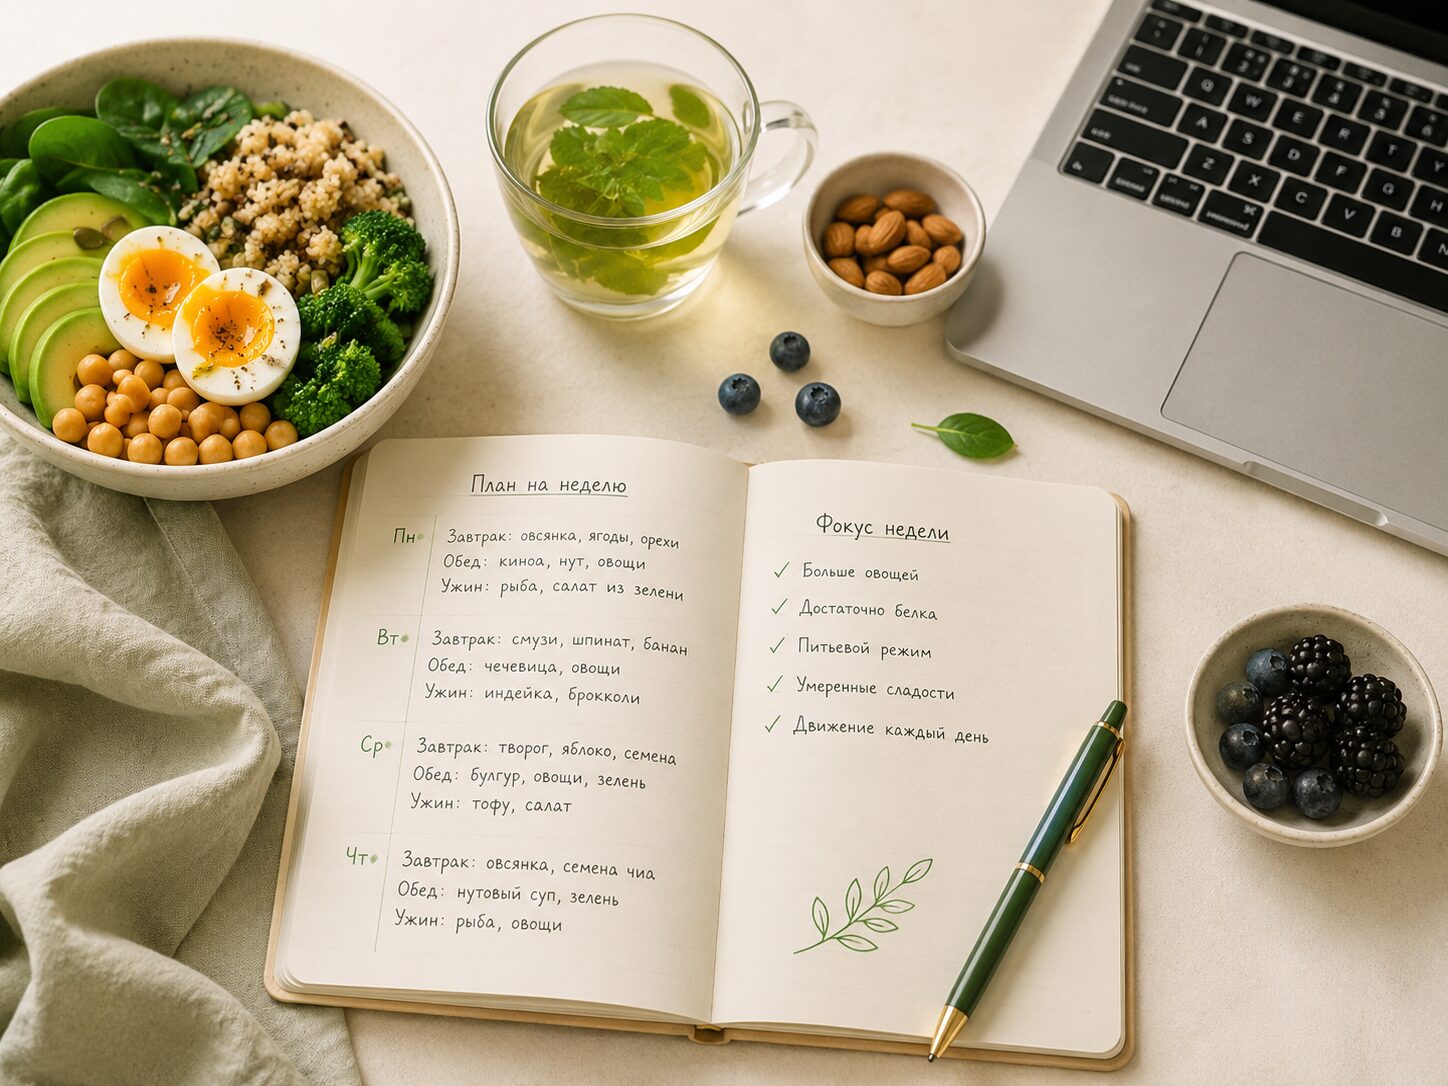 План на неделю
Пн
Завтрак: овсянка, ягоды, орехи
Обед: киноа, нут, овощи
Ужин: рыба, салат из зелени
Вт
Завтрак: смузи, шпинат, банан
Обед: чечевица, овощи
Ужин: индейка, брокколи
Ср
Завтрак: творог, яблоко, семена
Обед: булгур, овощи, зелень
Ужин: тофу, салат
Чт
Завтрак: овсянка, семена чиа
Обед: нутовый суп, зелень
Ужин: рыба, овощи
Фокус недели
Больше овощей
Достаточно белка
Питьевой режим
Умеренные сладости
Движение каждый день